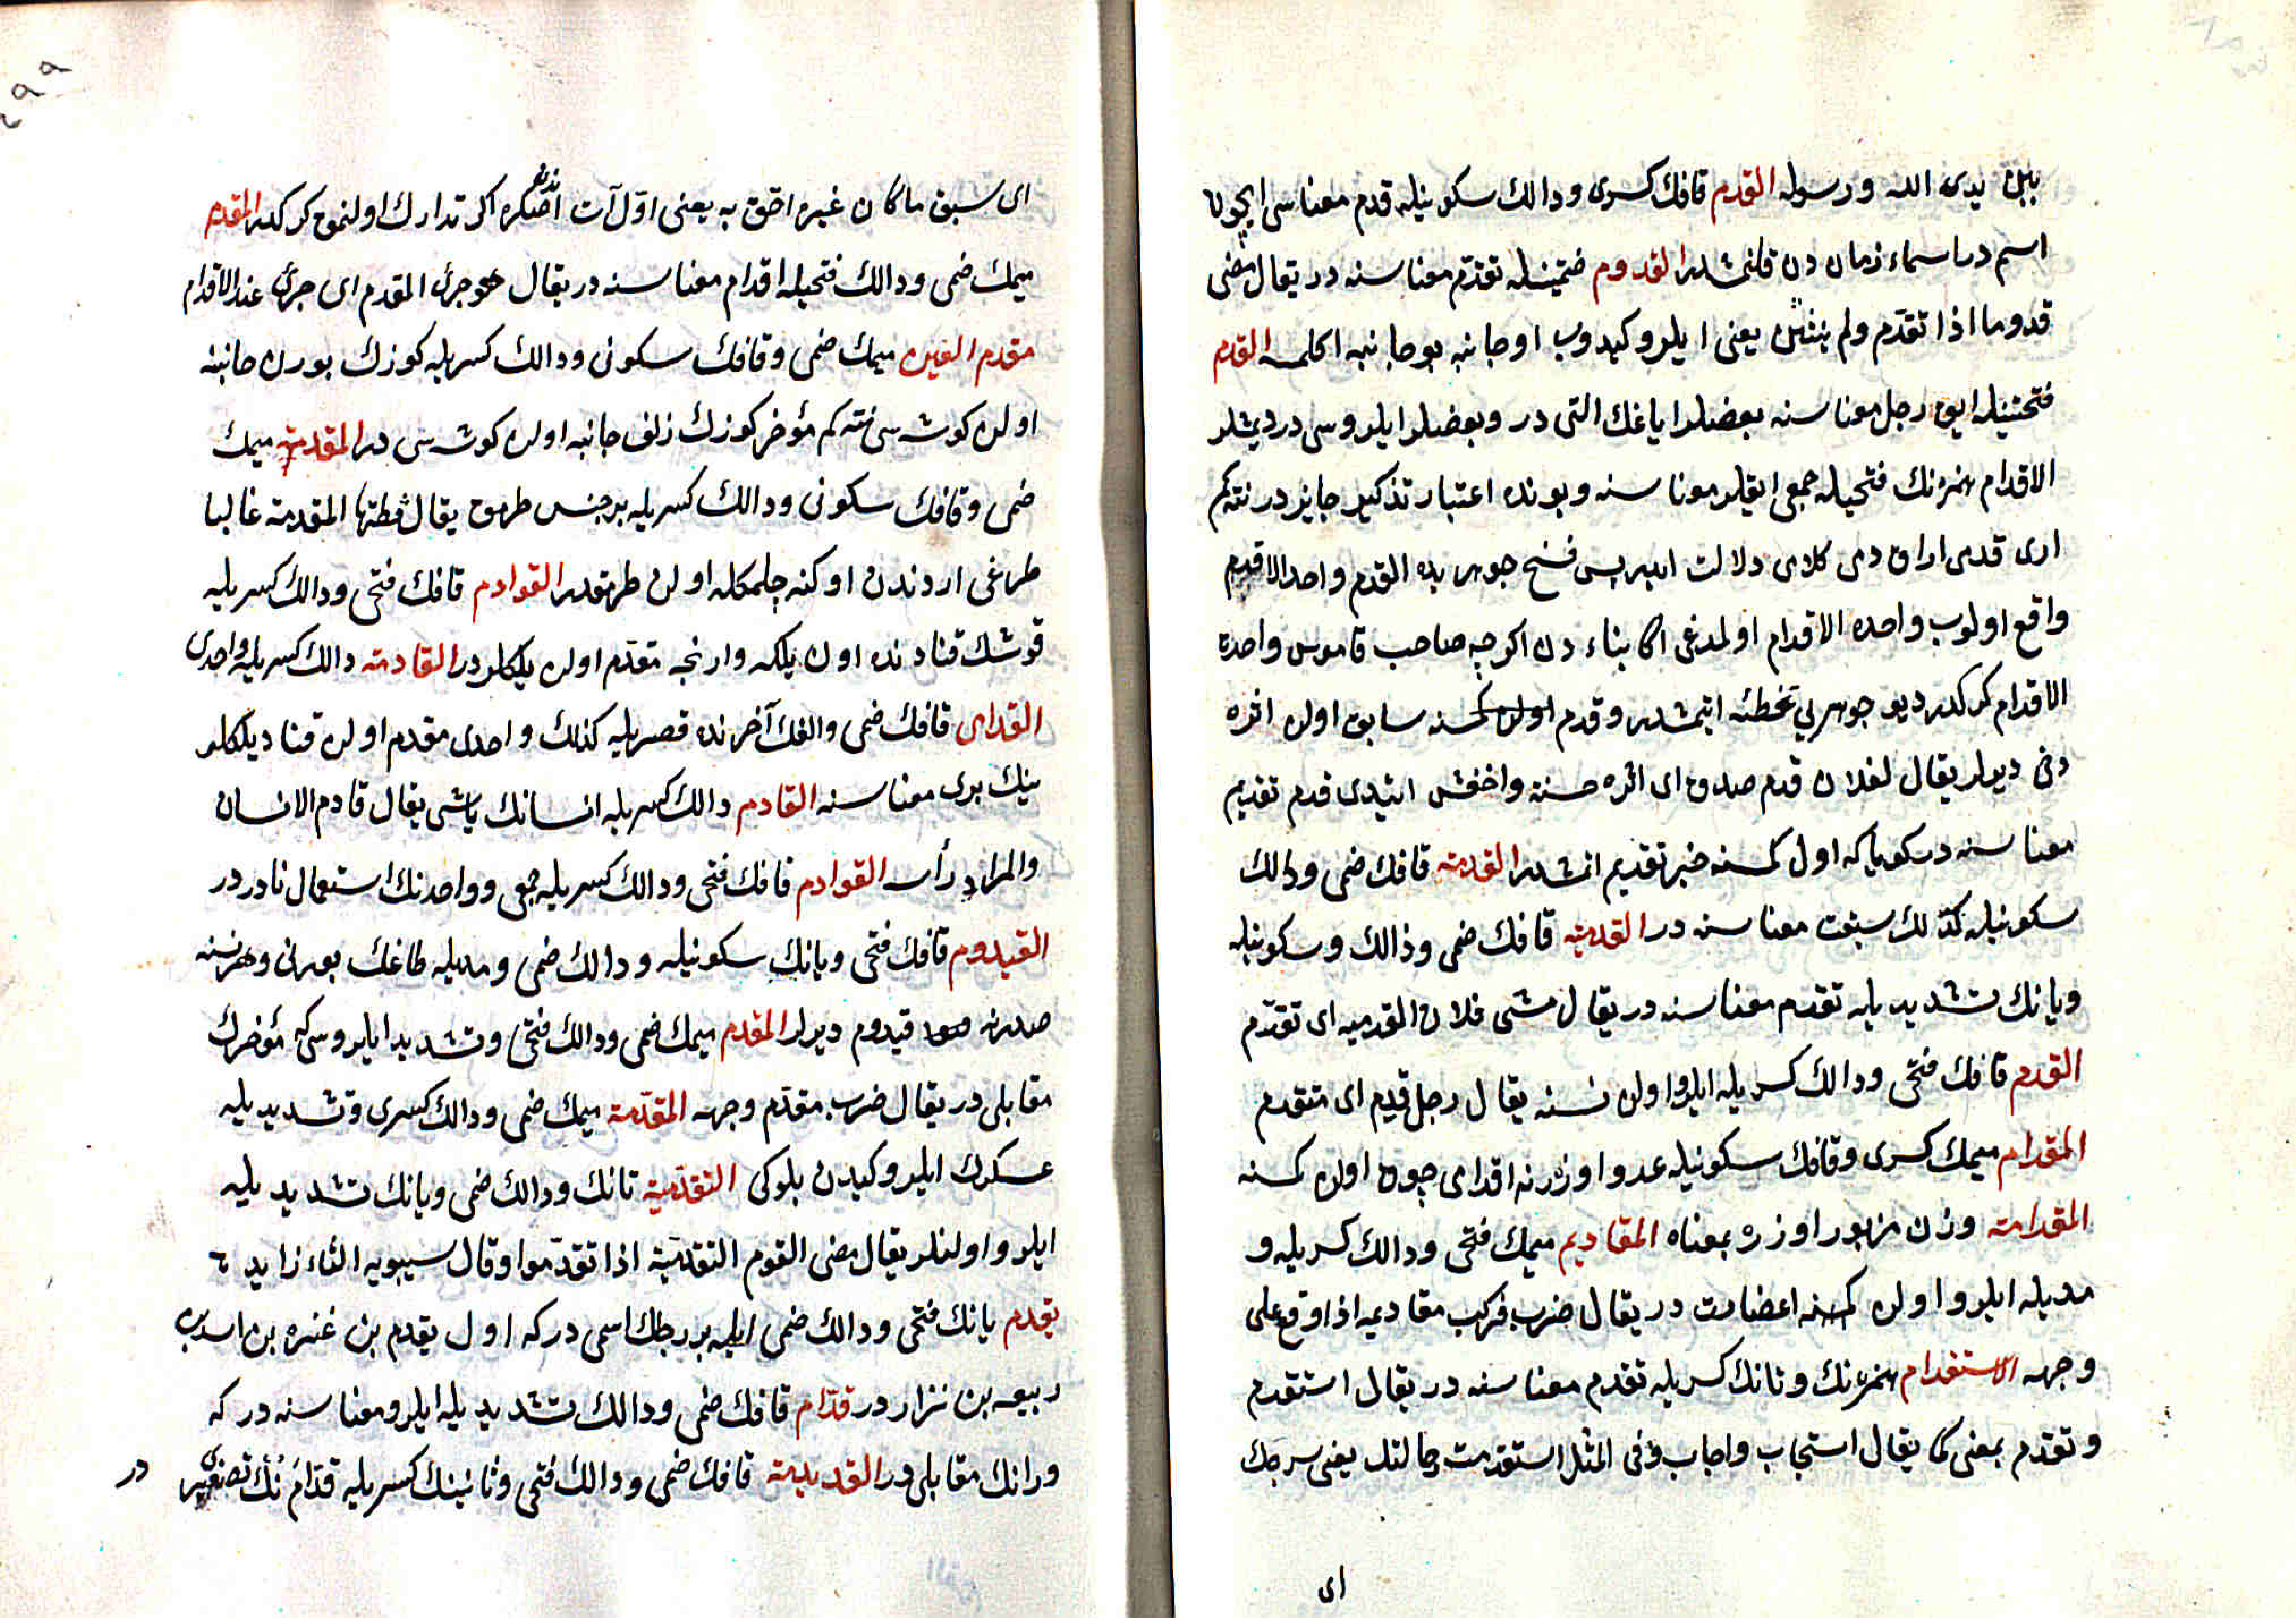 بين يدى الله ورسوله القدم قافك كسرى ودالك سكونيله قدم معناسى ايچون
اسم در اسماء زمان دن قلنمشدر القدوم ضمتينله تقدّم معناسنه در يقال مضى
قدوما اذا تقدّم ولم ينثن يعنى ايلرو كيدوب او جانبه بو جانبه اكلمسه القدم
فتحتينله ايق رجل معناسنه بعضلر اياغك التى در وبعضلر ايلروسى در ديمشلر
الاقدام همزنك فتحيله جمعى ايقلر معناسنه وبونده اعتبار تذكير جايز در نتكم
ارى قدمى اراق دمى كلامى دلالت ايدر پس نسخ جوهريده القدم واحد الاقدم
واقع اولوب واحده الاقدام اولمدغى اكا بناء در اكرچه صاحب قاموس واحدة
الاقدام كركدر ديو جوهرىي تخطئه اتمشدر وقدم اولن كمسنه سابق اولن اثره
دخى ديرلر يقال لفلان قدم صدق اى اثره حسنة واخفش ايتدى قدم تقديم
معناسنه در كويا كه اول كمسنه خير تقديم اتمشدر القدمة قافك ضمى ودالك
سكونيله كذلك سبقت معناسنه در القدمية قافك ضمى ودالك وسكونيله
ويانك تشديد يله تقدم معناسنه در يقال مشى فلان القدميه اى تقدّم
القدم قافك فتحى ودالك كسريله ايلرو اولن نسنه يقال رجل قدم اى متقدم
المقدام ميمك كسرى وقافك سكونيله عدو اوزرنه اقدامى چوق اولن كمسنه
المقدامة وزن مزبور اوزره بمعناه المقاديم ميمك فتحى ودالك كسريله و
مديله ايلرو اولن كمسنه اعضادن در يقال ضرب فركب مقاديمه اذا وقع على
وجهه الاستقدام همزنك وتانك كسريله تقدم معناسنه در يقال استقدم
وتقدم بمعنى كما يقال استجاب واجاب وفى المثل استقدمت رحالتك يعنى سرجك
اى
اى سبق ما كان غيره احق به يعنى اوّل آت اندن صكره اكر تدارك اولنمق كركدر المقدم
ميمك ضمى ودالك فتحيله اقدام معناسنه در يقال هو جرئ المقدم اى جرئ عند الاقدام
مقدم العين ميمك ضمى وقافك سكونى ودالك كسريله كوزك بورن جانبنه
اولن كوشه سى نته كم مؤخر كوزك زلف جانبه اولن كوشه سى در المقدمة ميمك
ضمى وقافك سكونى ودالك كسريله بر جنس طرمق يقال مشطتها المقدمة غالبا
طراغى اردندن اوكنه چلمكله اولن طرمقدر القوادم قافك فتحى ودالك كسريله
قوشك قنادنده اون يلكه وارنجه مقدّم اولن يلكلر در القادمة دالك كسريله واحدى
القدامى قافك ضمى والفك آخرنده قصريله كذلك واحدى مقدم اولن قناد يلكلر
ينك برى معناسنه القادم دالك كسريله انسانك باشى يقال قادم الانسان
والمراد رأسه القوادم قافك فتحى ودالك كسريله جمعى وواحدنك استعمال نادر در
القيدوم قافك فتحى ويانك سكونيله ودالك ضمى ومديله طاغك بورنى وهر نسنه
صدرنه قيدوم ديرلر المقدم ميمك ضمى ودالك فتحى وتشديد ايلروسكى مؤخرك
مقابلى در يقال ضرب مقدّم وجهه المقدّمة ميمك ضمى ودالك كسرى وتشديد يله
عسكرك ايلرو كيدن بلوكى التقدمية تانك ودالك ضمى ويانك تشديد يله
ايلرو اولنلر يقال مضى القوم التقدمية اذا تقدّموا وقال سيبويه التاء زايدة
يقدم يانك فتحى ودالك ضمى ايله بر رجلك اسمى در كه اول يقدم بن عنزه بن اسد بن
ربيعه بن نزار در قدّام قافك ضمى ودالك تشديد يله ايلرو معناسنه در كه
ورانك مقابلى در القديديمة قافك ضمى ودالك فتحى وثانينك كسريله قدّام نك تصغيرى در